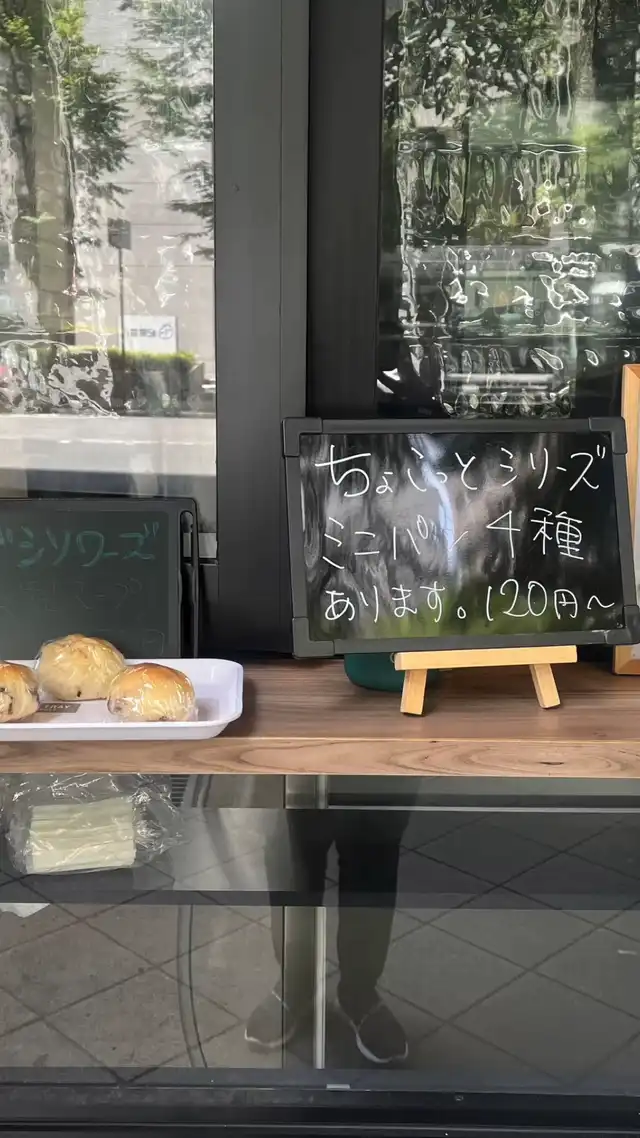 ちょこっとシリーズ
ミニパン4種
あります。120円〜